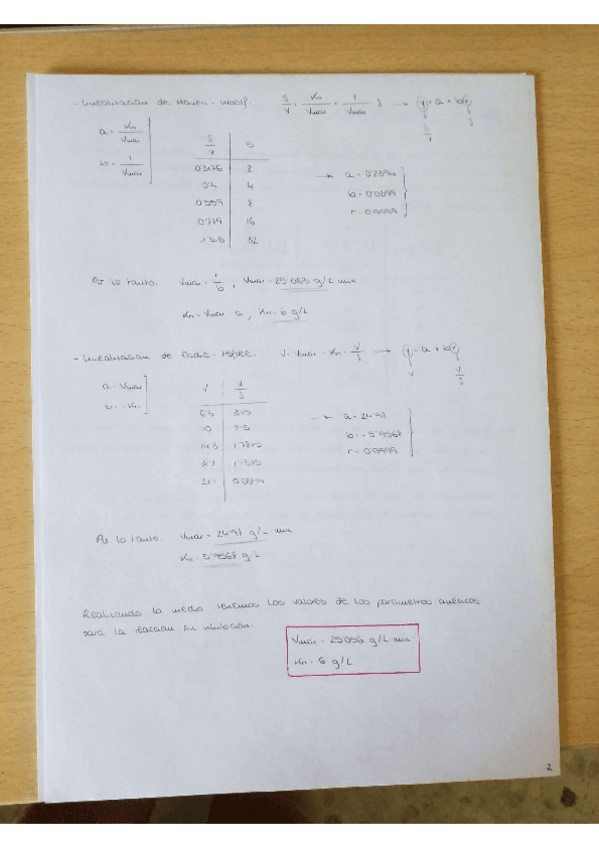 - Linealización de Hanes-Woolf: S/V = Km/Vmax + 1/Vmax · S → y = a + bx
S/V S
a = Km/Vmax
b = 1/Vmax
S/V S
0'3175 2
0'4 4
0'559 8
0'879 16
32
→ a = 0'2394
b = 0'0399
r = 0'9999
Por lo tanto: Vmax = 1/b, Vmax = 25'063 g/L min
Km = Vmax · a, Km = 6 g/L
- Linealización de Eadie-Hofstee: V = Vmax - Km · V/S → y = a + bx
V V/S
a = Vmax
b = -Km
V V/S
6'3 3'15
10 2'5
14'3 1'7875
→ a = 24'98
b = -5'9568
r = 0'9999
Por lo tanto: Vmax = 24'98 g/L min
Km = 5'9568 g/L
Realizando la media tenemos los valores de los parámetros cinéticos
para la reacción sin inhibición:
Vmax = 25'056 g/L min
Km = 6 g/L
2